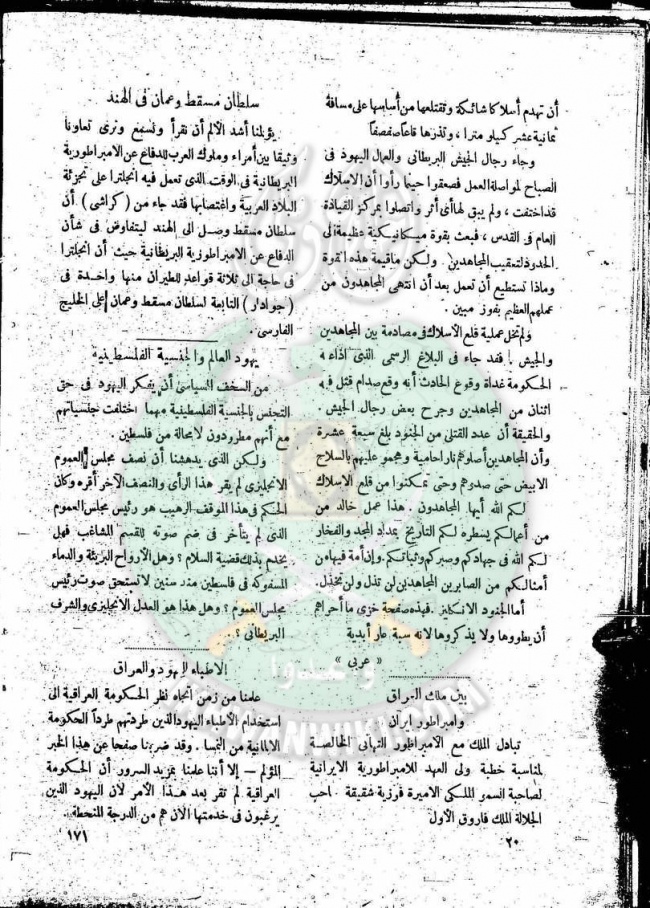 أن تهدم أسلاكا شائكة وتقتلعها من أساسها على مسافة
ثمانية عشر كيلو مترا ، وتذرها قاعا صفصفا
وجاء رجال الجيش البريطانى والعمال اليهود فى
الصباح لمواصلة العمل فصعقوا حينما رأوا أن الاسلاك
قد اختفت ، ولم يبق لها أى أثر واتصلوا بمركز القيادة
العام فى القدس ، فبعث بقوة ميكانيكية عظيمة الى
الحدود لتعقيب المجاهدين . ولكن ما قيمة هذه القوة
وماذا تستطيع أن تعمل بعد أن انتهى المجاهدون من
عملهم العظيم بفوز مبين .
ولم تخل عملية قلع الأسلاك فى مصادمة بين المجاهدين
والجيش . فقد جاء فى البلاغ الرسمى الذى اذاعته
الحكومة غداة وقوع الحادث أنه وقع صدام قتل فيه
اثنان من المجاهدين وجرح بعض رجال الجيش .
والحقيقة أن عدد القتلى من الجنود بلغ سبعة عشرة
وأن المجاهدين أصلوهم نارا حامية وهجموا عليهم بالسلاح
الابيض حتى صدوهم وحتى تمكنوا من قلع الاسلاك
لكم الله أيها المجاهدون . هذا عمل خالد من
من أعمالكم يسطره لكم التاريخ بمداد المجد والفخار
لكم الله فى جهادكم وصبركم وثباتكم . وإن أمة فيها من
أمثالكم من الصابرين المجاهدين لن تذل ولن تخذل .
أما الجنود الانكليز . فهذه صفحة خزى ما أحراهم
أن يطووها ولا يذكروها لانه سبة عار أبدية
« عربى »
بين ملك العراق
وامبراطور ايران
تبادل الملك مع الامبراطور التهانى الخالصة
لمناسبة خطبة ولى العهد للامبراطورية الايرانية
لصاحبة السمو الملكى الاميرة فوزية شقيقة صاحب
الجلالة الملك فاروق الأول
٢٠
سلطان مسقط وعمان فى الهند
يؤلمنا أشد الألم أن نقرأ ونسمع ونرى تعاونا
وثيقا بين أمراء وملوك العرب للدفاع عن الامبراطورية
البريطانية فى الوقت الذى تعمل فيه انجلترا على تجزئة
البلاد العربية واغتصابها فقد جاء من ( كراشى ) أن
سلطان مسقط وصل الى الهند ليتفاوض فى شأن
الدفاع عن الامبراطورية البريطانية حيث أن انجلترا
فى حاجة الى ثلاثة قواعد للطيران منها واحدة فى
( جوادار ) التابعة لسلطان مسقط وعمان على الخليج
الفارسى .
يهود العالم والجنسية الفلسطينية
من السخف السياسى أن يفكر اليهود فى حق
التجنس بالجنسية الفلسطينية مهما اختلفت جنسياتهم
مع أنهم مطرودون لا محالة من فلسطين .
ولكن الذى يدهشنا أن نصف مجلس العموم
الانجليزى لم يقر هذا الرأى والنصف الآخر أقره وكان
الحكم فى هذا الموقف الرهيب هو رئيس مجلس العموم
الذى لم يتأخر فى ضم صوته للقسم المشاغب فهل
يخدم بذلك قضية السلام ؟ وهل الأرواح البريئة والدماء
المسفوكة فى فلسطين منذ سنين لا تستحق صوت رئيس
مجلس العموم ؟ وهل هذا هو العدل الانجليزى والشرف
البريطانى ؟ . .
الاطباء اليهود والعراق
علمنا من زمن اتجاه نظر الحكومة العراقية الى
استخدام الأطباء اليهود الذين طردتهم طردا الحكومة
الالمانية من النمسا . وقد ضربنا صفحا عن هذا الخبر
المؤلم — إلا أننا علمنا بمزيد السرور أن الحكومة
العراقية لم تقر بعد هذا الأمر لأن اليهود الذين
يرغبون فى خدمتها الآن هم من الدرجة المنحطة .
١٧١